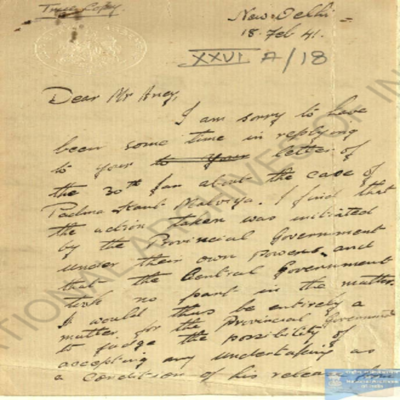 True Copy
New Delhi
18 Feb 41.
XXVI A/18
Dear Mr Aney,
I am sorry to have
been some time in replying
to your to your letter of
the 30th Jan about the case of
Padma Kant Malviya. I find that
the action taken was initiated
by the Provincial Government
under their own powers, and
that the Central Government
took no part in the matter.
It would thus be entirely a
matter for the Provincial Government
to judge the possibility of
accepting any undertaking as
a condition of his release from
NATIONAL ARCHIVES OF IN